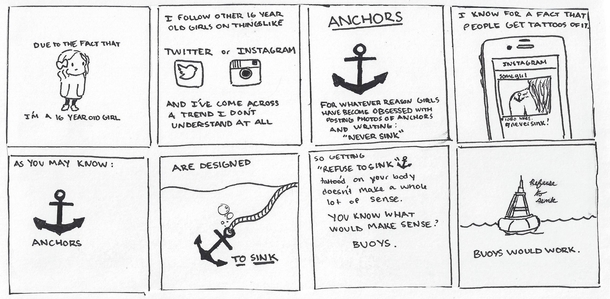 DUE TO THE FACT THAT
I'M A 16 YEAR OLD GIRL.
I FOLLOW OTHER 16 YEAR
OLD GIRLS ON THINGSLIKE
TWITTER or INSTAGRAM
AND I'VE COME ACROSS
A TREND I DON'T
UNDERSTAND AT ALL
ANCHORS
FOR WHATEVER REASON GIRLS
HAVE BECOME OBSESSED WITH
POSTING PHOTOS OF ANCHORS
AND WRITING:
"NEVER SINK"
I KNOW FOR A FACT THAT
PEOPLE GET TATTOOS OF IT.
INSTAGRAM
some girl
#never sink!
AS YOU MAY KNOW:
ANCHORS
ARE DESIGNED
TO SINK
SO GETTING
"REFUSE TO SINK"
tattooed on your body
doesn't make a whole
lot of sense.
YOU KNOW WHAT
WOULD MAKE SENSE?
BUOYS.
Refuse
to
sink
BUOYS WOULD WORK.